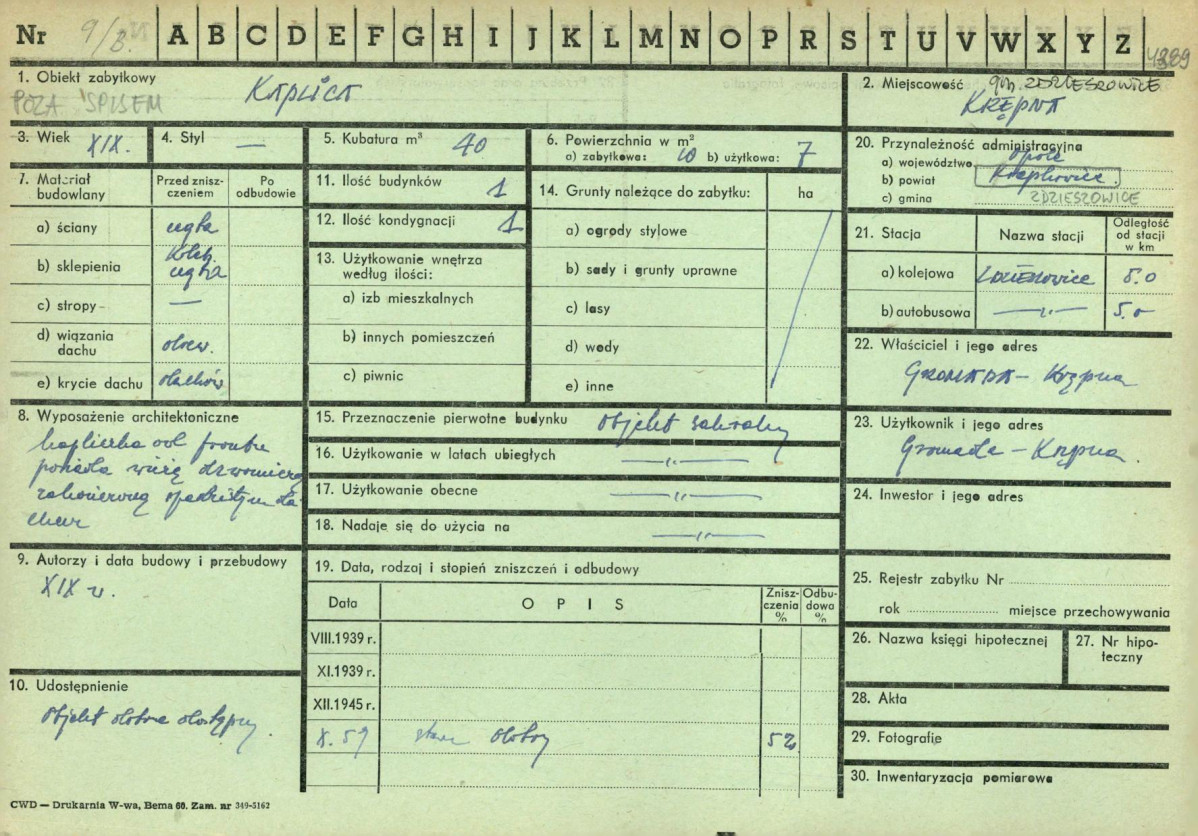 Nr 9/B. A B C D E F G H I J K L M N O P R S T U V W X Y Z
1. Obiekt zabytkowy
KAPLICA
POZA SPISEM
2. Miejscowość gm. ZDZIESZOWICE
KRĘPNA
3. Wiek XIX.
4. Styl —
5. Kubatura m³ 40
6. Powierzchnia w m²
a) zabytkowa: 10 b) użytkowa: 7
7. Materiał budowlany
Przed zniszczeniem
Po odbudowie
a) ściany cegła
b) sklepienia koleb. cegła
c) stropy —
d) wiązania dachu drew.
e) krycie dachu dachów.
8. Wyposażenie architektoniczne
kapliczka od frontu
posiada wieżę dzwonniczą
zakończoną spadzistym da-
chem
9. Autorzy i data budowy i przebudowy
XIX w.
10. Udostępnienie
Objekt dobrze dostępny.
11. Ilość budynków 1
12. Ilość kondygnacji 1
13. Użytkowanie wnętrza według ilości:
a) izb mieszkalnych
b) innych pomieszczeń
c) piwnic
14. Grunty należące do zabytku: ha
a) ogrody stylowe
b) sady i grunty uprawne
c) lasy
d) wody
e) inne
15. Przeznaczenie pierwotne budynku Objekt sakralny
16. Użytkowanie w latach ubiegłych —"—
17. Użytkowanie obecne —"—
18. Nadaje się do użycia na —"—
19. Data, rodzaj i stopień zniszczeń i odbudowy
Data
OPIS
Zniszczenia %
Odbudowa %
VIII.1939 r.
XI.1939 r.
XII.1945 r.
X. 59 stan dobry
20. Przynależność administracyjna
a) województwo opole
b) powiat Krapkowice
c) gmina ZDZIESZOWICE
21. Stacja
Nazwa stacji
Odległość od stacji w km
a) kolejowa Zdzieszowice 5.0
b) autobusowa —"— 5.0
22. Właściciel i jego adres
GROMADA – Krępna
23. Użytkownik i jego adres
Gromada – Krępna.
24. Inwestor i jego adres
25. Rejestr zabytku Nr
rok miejsce przechowywania
26. Nazwa księgi hipotecznej
27. Nr hipoteczny
28. Akta
29. Fotografie
30. Inwentaryzacja pomiarowa
CWD — Drukarnia W-wa, Bema 60. Zam. nr 349-5162